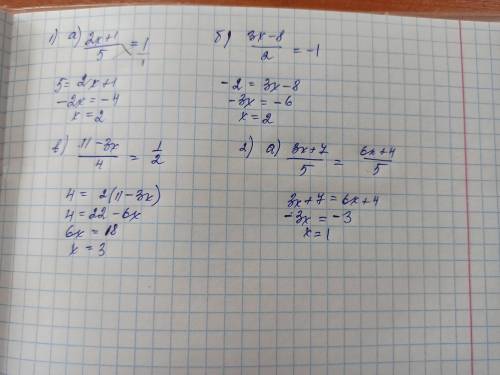 1) а) (2x+1)/5 = 1/1
5 = 2x+1
-2x = -4
x = 2
б) (3x-8)/2 = -1
-2 = 3x-8
-3x = -6
x = 2
в) (11-3x)/4 = 1/2
4 = 2(11-3x)
4 = 22-6x
6x = 18
x = 3
2) а) (3x+7)/5 = (6x+4)/5
3x+7 = 6x+4
-3x = -3
x = 1